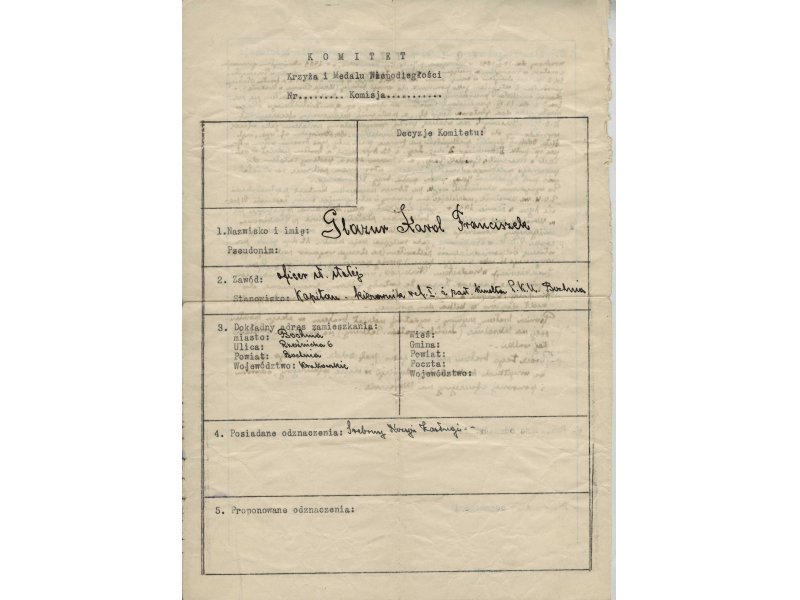 KOMITET
Krzyża i Medalu Niepodległości
Nr......... Komisja...........
Decyzje Komitetu:
1. Nazwisko i imię: Glazur Karol Franciszek
Pseudonim:
2. Zawód: oficer sł. stałej
Stanowisko: Kapitan - kierownik ref. I i zast. P.K.U. Bochnia
3. Dokładny adres zamieszkania:
miasto: Bochnia
Ulica: 6
Powiat: Bochnia
Województwo: Krakowskie
Wieś:
Gmina:
Powiat:
Poczta:
Województwo:
4. Posiadane odznaczenia: Srebrny Krzyż Zasługi --
5. Proponowane odznaczenia: